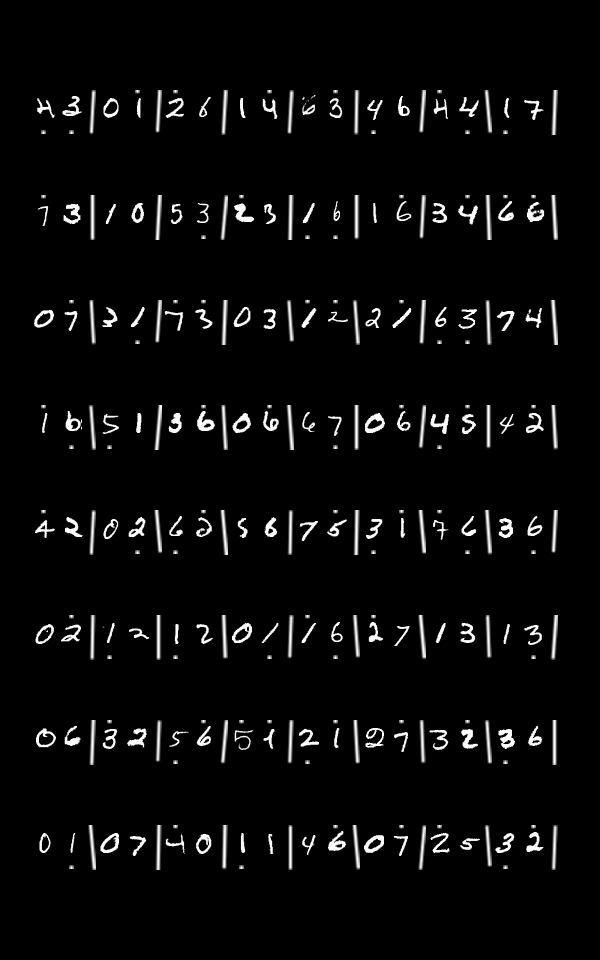 4 3 | 0 1 | 2 6 | 1 4 | 6 3 | 4 6 | 4 4 | 1 7 |
7 3 | 1 0 | 5 3 | 2 3 | 1 6 | 1 6 | 3 4 | 6 6 |
0 7 | 3 1 | 7 3 | 0 3 | 1 2 | 2 1 | 6 3 | 7 4 |
1 6 | 5 1 | 3 6 | 0 6 | 6 7 | 0 6 | 4 5 | 4 2 |
4 2 | 0 2 | 6 2 | 5 6 | 7 5 | 3 1 | 7 6 | 3 6 |
0 2 | 1 2 | 1 2 | 0 1 | 1 6 | 2 7 | 1 3 | 1 3 |
0 6 | 3 2 | 5 6 | 5 1 | 2 1 | 2 7 | 3 2 | 3 6 |
0 1 | 0 7 | 4 0 | 1 1 | 4 6 | 0 7 | 2 5 | 3 2 |